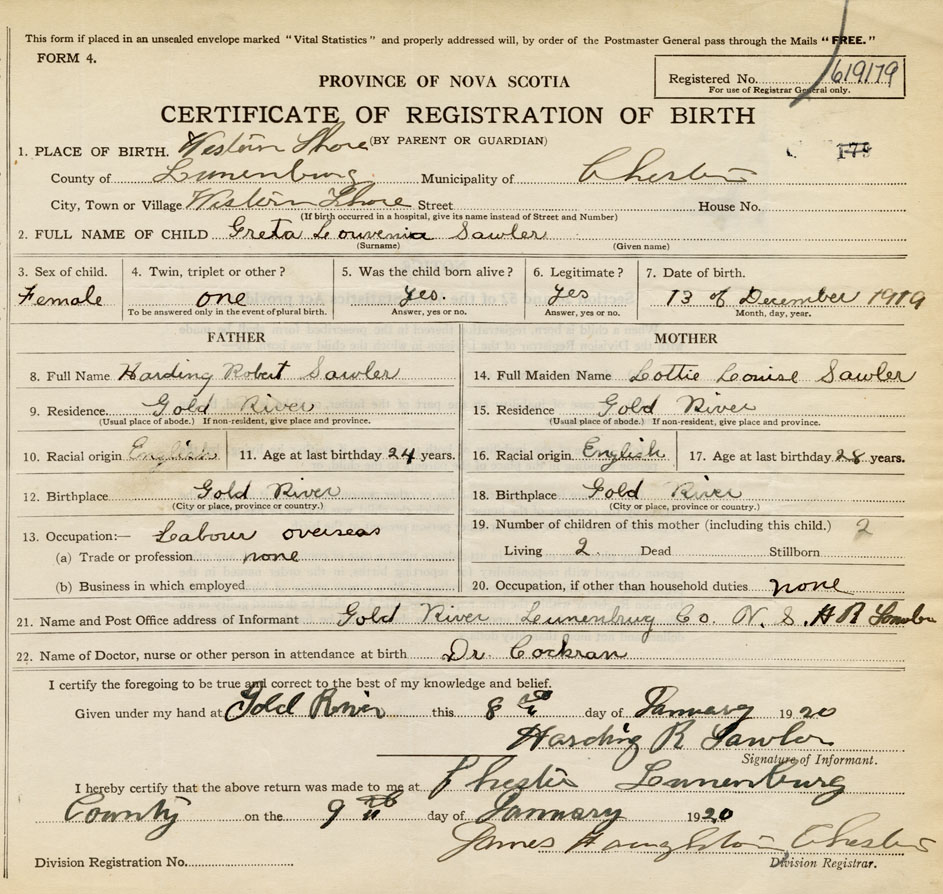 This form if placed in an unsealed envelope marked "Vital Statistics" and properly addressed will, by order of the Postmaster General pass through the Mails "FREE."
FORM 4.
PROVINCE OF NOVA SCOTIA
Registered No. 619179
For use of Registrar General only.
CERTIFICATE OF REGISTRATION OF BIRTH
(BY PARENT OR GUARDIAN)
1. PLACE OF BIRTH. Western Shore
179
County of Lunenburg Municipality of Chester
City, Town or Village Western Shore Street House No.
(If birth occurred in a hospital, give its name instead of Street and Number)
2. FULL NAME OF CHILD Greta Louvenia Sawler
(Surname) (Given name)
3. Sex of child. 4. Twin, triplet or other? 5. Was the child born alive? 6. Legitimate? 7. Date of birth.
Female one yes. yes 13 of December 1919
To be answered only in the event of plural birth. Answer, yes or no. Answer, yes or no. Month, day, year.
FATHER MOTHER
8. Full Name Harding Robert Sawler 14. Full Maiden Name Lottie Louise Sawler
9. Residence. Gold River 15. Residence Gold River
(Usual place of abode.) If non-resident, give place and province. (Usual place of abode.) If non-resident, give place and province.
10. Racial origin English 11. Age at last birthday 24 years. 16. Racial origin English 17. Age at last birthday 28 years.
12. Birthplace Gold River 18. Birthplace Gold River
(City or place, province or country.) (City or place, province or country.)
13. Occupation:— Labour overseas 19. Number of children of this mother (including this child.) 2
(a) Trade or profession. none Living 2. Dead Stillborn
(b) Business in which employed 20. Occupation, if other than household duties. none
21. Name and Post Office address of Informant Gold River Lunenbrug Co. N. S. H R Sawler
22. Name of Doctor, nurse or other person in attendance at birth Dr. Cockran
I certify the foregoing to be true and correct to the best of my knowledge and belief.
Given under my hand at Gold River this 8th day of January 1920
Harding R Sawler
Signature of Informant.
I hereby certify that the above return was made to me at Chester Lunenburg
County on the 9th day of January 1920
James Chester
Division Registration No. Division Registrar.